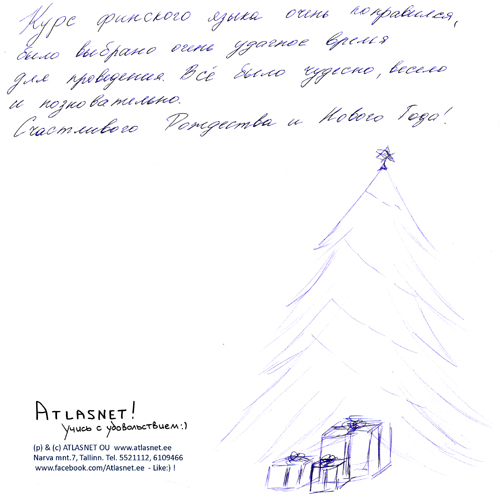 Курс финского языка очень понравился,
было выбрано очень удачное время
для проведения. Всё было чудесно, весело
и позновательно.
Счастливого Рождества и Нового Года!
ATLASNET!
Учись с удовольствием:)
(p) & (c) ATLASNET OU www.atlasnet.ee
Narva mnt.7, Tallinn. Tel. 5521112, 6109466
www.facebook.com/Atlasnet.ee - Like:) !